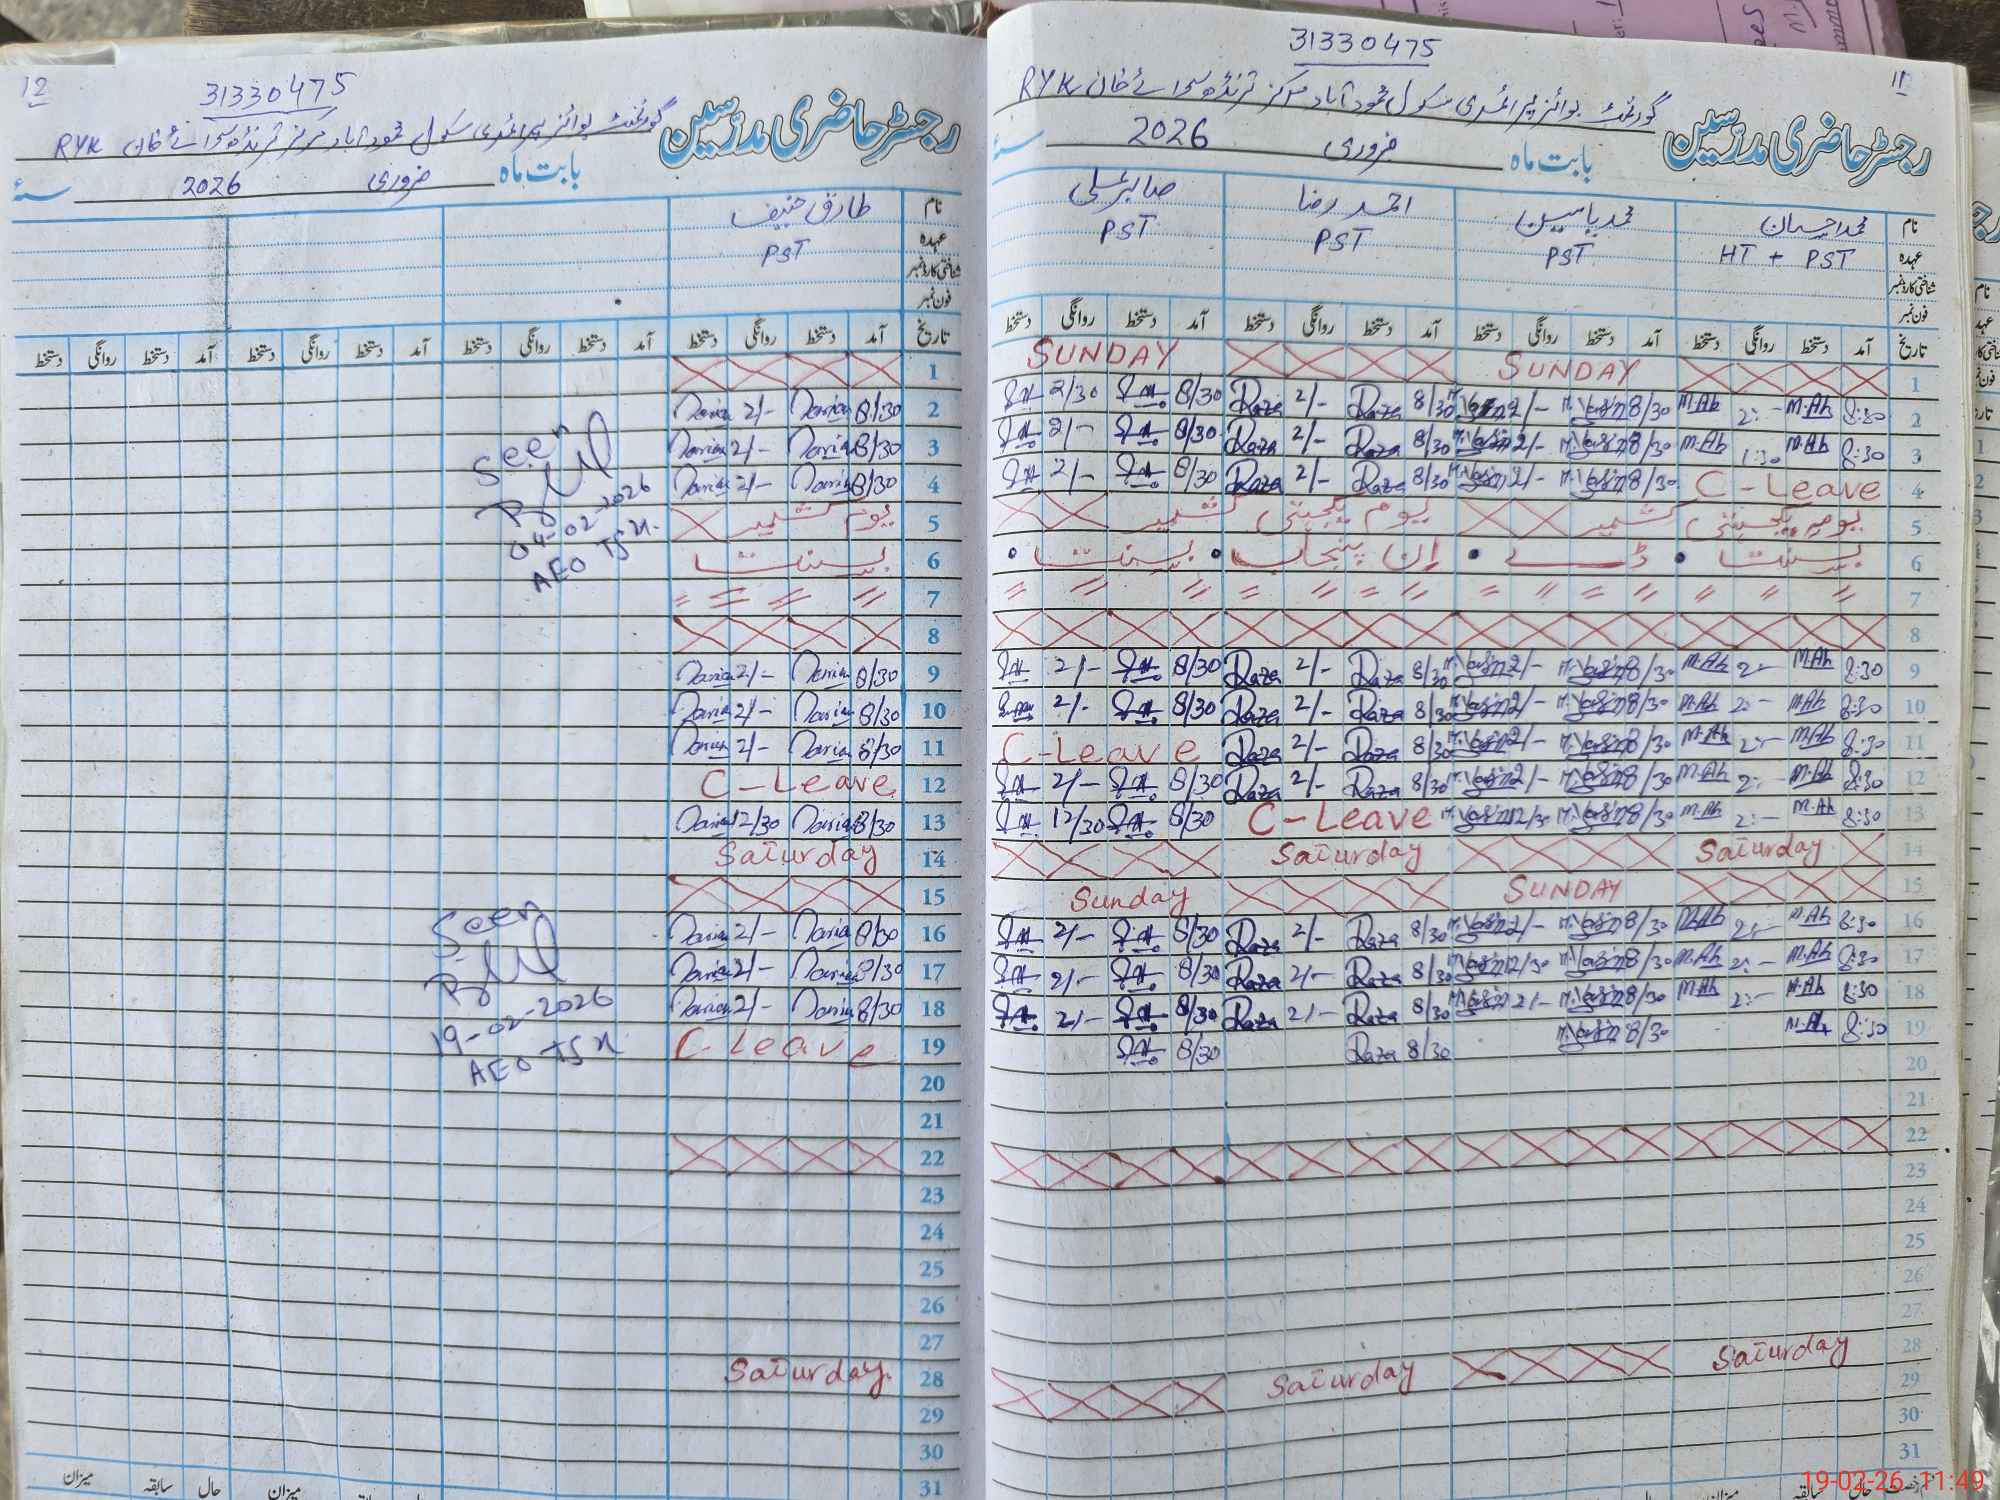 12
31330475
رجسٹر حاضری مدرسین
گورنمنٹ بوائز پرائمری سکول محمود آباد مرکز ترنڈہ سوائے خان RYK
بابت ماہ فروری 2026 سنہ
نام طارق حنیف
عہدہ PST
شناختی کارڈ نمبر
فون نمبر
تاریخ آمد دستخط روانگی دستخط آمد دستخط روانگی دستخط آمد دستخط روانگی دستخط آمد دستخط روانگی دستخط
1
2 8/30 Tariq 2/- Tariq
3 8/30 Tariq 2/- Tariq
4 8/30 Tariq 2/- Tariq
5 یوم کشمیر
6 بسنت
7 〃 〃 〃 〃
8
9 8/30 Tariq 2/- Tariq
10 8/30 Tariq 2/- Tariq
11 8/30 Tariq 2/- Tariq
12 C-Leave
13 8/30 Tariq 12/30 Tariq
14 Saturday
15
16 8/30 Tariq 2/- Tariq
17 8/30 Tariq 2/- Tariq
18 8/30 Tariq 2/- Tariq
19 C-Leave
20
21
22
23
24
25
26
27
28 Saturday
29
30
31
Seen
04-02-2026
AEO TSK
Seen
19-02-2026
AEO TSK
میزان سابقہ حال میزان
11
31330475
رجسٹر حاضری مدرسین
گورنمنٹ بوائز پرائمری سکول محمود آباد مرکز ترنڈہ سوائے خان RYK
بابت ماہ فروری 2026 سنہ
نام محمد احسان محمد یاسین احمد رضا صابر علی
عہدہ HT + PST PST PST PST
شناختی کارڈ نمبر
فون نمبر
تاریخ آمد دستخط روانگی دستخط آمد دستخط روانگی دستخط آمد دستخط روانگی دستخط آمد دستخط روانگی دستخط
1 SUNDAY SUNDAY
2 8:30 M.Ah 2:- M.Ah 8/30 M.Yasin 2/- M.Yasin 8/30 Raza 2/- Raza 8/30 2/30
3 8:30 M.Ah 1:30 M.Ah 8/30 M.Yasin 2/- M.Yasin 8/30 Raza 2/- Raza 8/30 2/-
4 C-Leave 8/30 M.Yasin 2/- M.Yasin 8/30 Raza 2/- Raza 8/30 2/-
5 یوم یکجہتی کشمیر یوم یکجہتی کشمیر
6 بسنت • ڈے • اِن پنجاب • بسنت •
7 〃 〃 〃 〃 〃 〃 〃 〃 〃 〃 〃 〃 〃 〃
8
9 8:30 M.Ah 2:- M.Ah 8/30 M.Yasin 2/- M.Yasin 8/30 Raza 2/- Raza 8/30 2/-
10 8:30 M.Ah 2:- M.Ah 8/30 M.Yasin 2/- M.Yasin 8/30 Raza 2/- Raza 8/30 2/-
11 8:30 M.Ah 2:- M.Ah 8/30 M.Yasin 2/- M.Yasin 8/30 Raza 2/- Raza C-Leave
12 8:30 M.Ah 2:- M.Ah 8/30 M.Yasin 2/- M.Yasin 8/30 Raza 2/- Raza 8/30 2/-
13 8:30 M.Ah 2:- M.Ah 8/30 M.Yasin 12/30 M.Yasin C-Leave 8/30 12/30
14 Saturday Saturday
15 SUNDAY Sunday
16 8:30 M.Ah 2:- M.Ah 8/30 M.Yasin 2/- M.Yasin 8/30 Raza 2/- Raza 8/30 2/-
17 8:30 M.Ah 2:- M.Ah 8/30 M.Yasin 12/30 M.Yasin 8/30 Raza 2/- Raza 8/30 2/-
18 8:30 M.Ah 2:- M.Ah 8/30 M.Yasin 2/- M.Yasin 8/30 Raza 2/- Raza 8/30 2/-
19 8:30 M.Ah 8/30 M.Yasin 8/30 Raza 8/30
20
21
22
23
24
25
26
27
28 Saturday Saturday
29
30
31
19-02-26 11:49